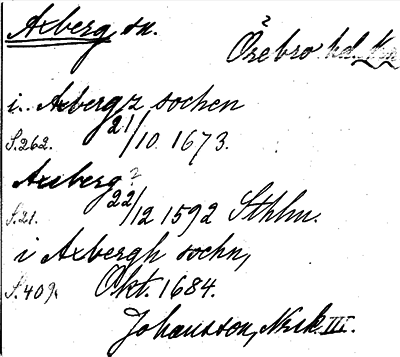 Axberg sn.
Örebro hd.
i Axbergz sochen
S. 262. 21/10 1673.
Axberg?
S. 21. 22/12 1592 Sthlm.
i Axbergh sochn,
S. 409. Okt. 1684.
Johansson, Nerik. III.